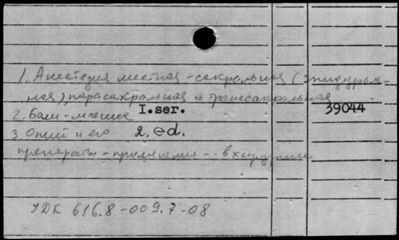 1. Анестезия местная - сакральная (эпидураль-
ная), парасакральная и транссакральная
I. ser. 39044
2. Боли - лечение
2. ed.
3. Опий и его
препараты - применение - в хирургии
УДК 616.8-009.7-08